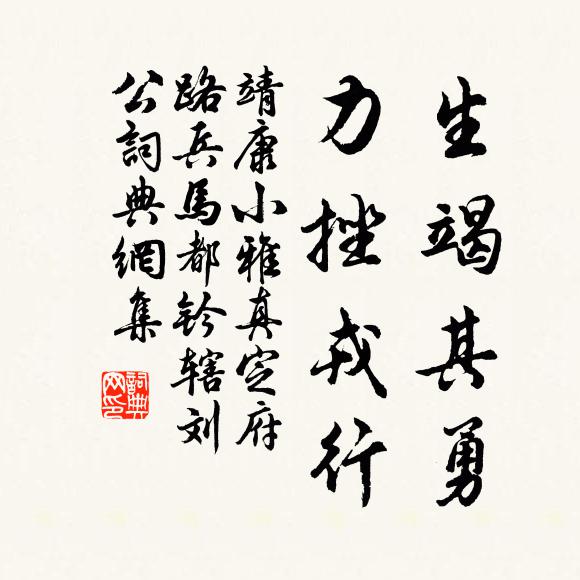 生竭其勇
力挫戎行
靖康小雅真定府
路兵馬都鈐辖刘
公詞典網集
詞典
网印